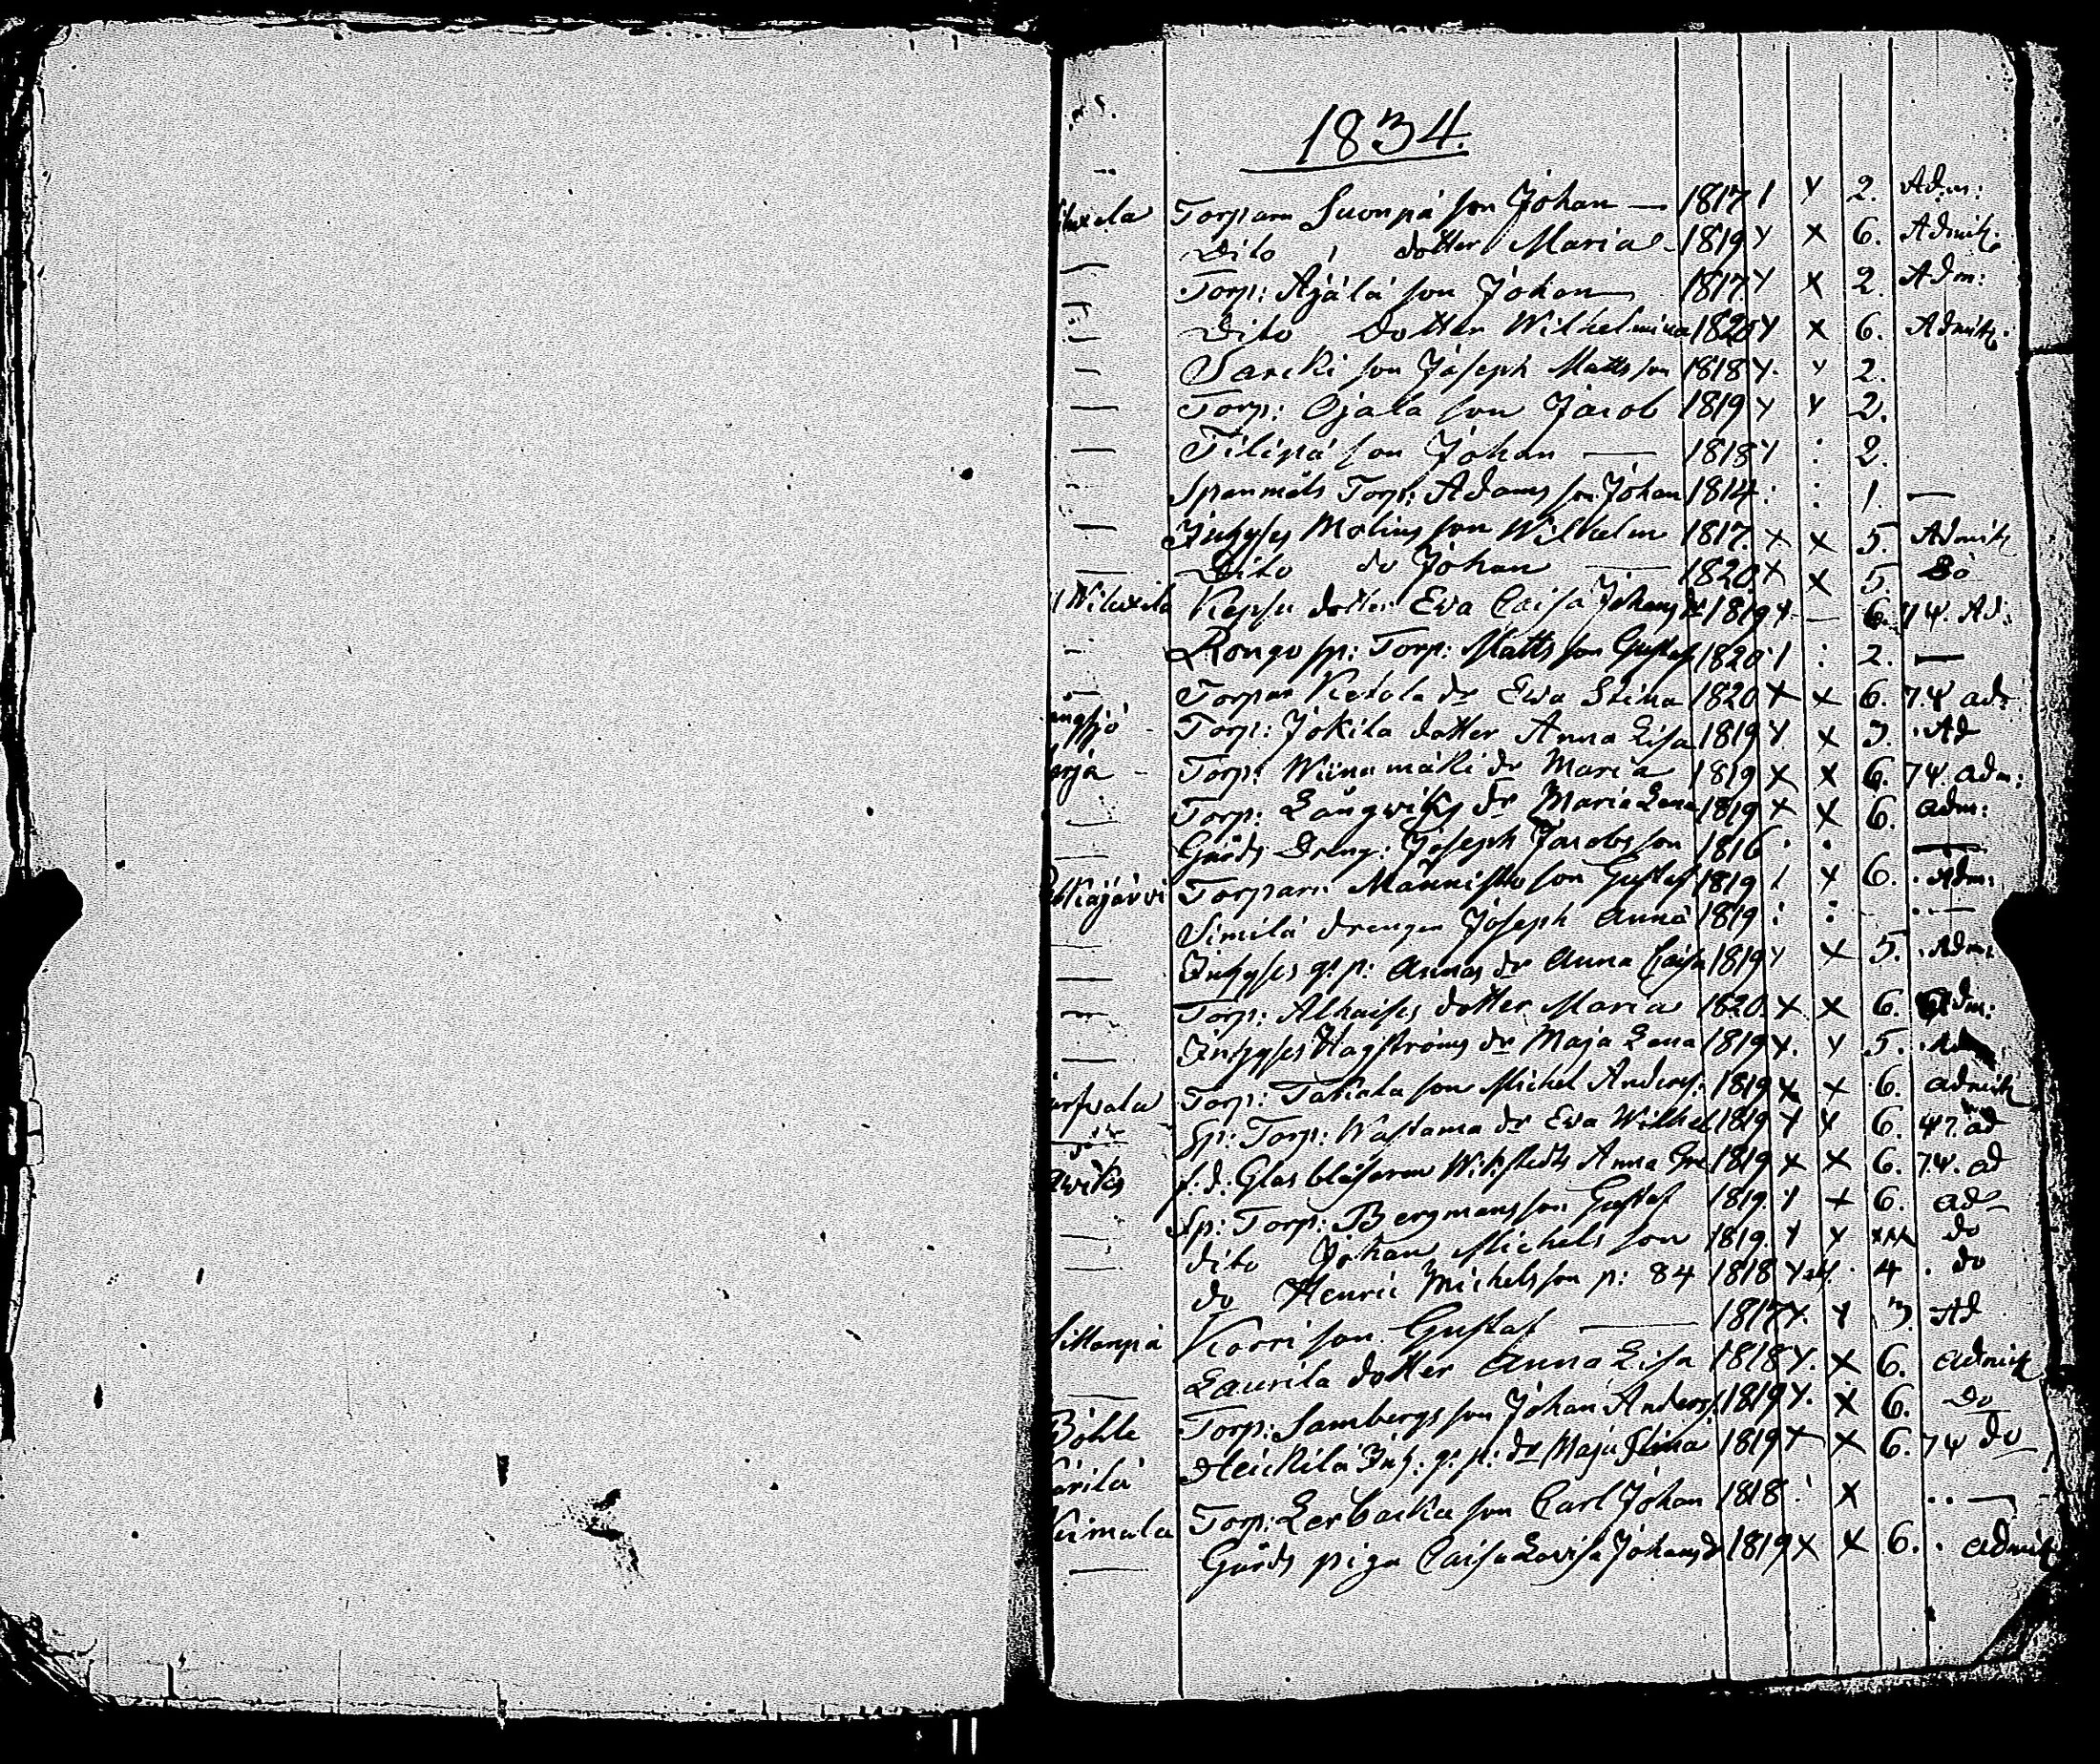 1834.
Torparn Suonpä son Johan — 1817 1 x 2. Adm:
— Dito dotter Maria - 1819 x x 6. Admitt.
Torp: Äjälä son Johan — 1817 x x 2. Adm:
— Dito Dotter Wilhelmina 1820 x x 6. Admitt.
— Sarcki son Joseph Mattsson 1818 x x 2.
— Torp: Ojala son Jacob 1819 x x 2.
— Filipä son Johan — 1818 x : 2.
- Spanmåls Torp: Adams son Johan 1814 : : 1. —
— Inhyses Molins son Wilhelm 1817. x x 5. Admitt
— Dito do Johan — 1820 x x 5. Do
Wiluxela Kepsu dotter Eva Caisa Johans dr 1819 x — 6. 74. Ad:
- Rongo sp: Torp: Matts son Gustaf 1820 1 : 2. —
— Torpar Ketola dr Eva Stina 1820 x x 6. 74 ad:
Torp: Jokila dotter Anna Lisa 1819 x x 3. Ad
Torp: Wiinamäki dr Maria 1819 x x 6. 74. adm:
— Torp: Långwiks dr Maria Lena 1819 x x 6. adm:
— Gårds Dreng: Joseph Jacobsson 1816 . . —
Torparn Männistö son Gustaf 1819 1 x 6. Adm:
— Similä drengen Joseph Annä 1819 : : —
— Inhyses q: p: Annas dr Anna Caisa 1819 x x 5. Adm:
— Torp: Alhaises dotter Maria 1820 x x 6. Adm:
— Inhyses Hagströms dr Maja Lena 1819 x. x 5.
Torp: Takala son Michel Anders: 1819 x x 6. admitt
Sp: Torp: Wastama dr Eva Wilhel 1819 x x 6. 47. ad
f. d. Glasblåsaren Wikstedts Anna Gre 1819 x x 6. 74. ad
— Sp: Torp: Bergmans son Gustaf 1819 x x 6. ad
— dito Johan Michels son 1819. x x xxx do
do Henric Michelsson p: 84 1818 4 . do
Korri son Gustaf — 1817 x. x 3. Ad
— Laurila dotter Anna Lisa 1818 x. x 6. admitt
Böhle Torp: Sambergs son Johan Anders. 1819 x. x 6. Do
Heickilä Inh: q: p: dr Maja Stina 1819 x x 6. 74 do
Torp: Lerbacka son Carl Johan 1818 : x .. —
— Gårds piga Caisa Lovisa Johans dr 1819 x x 6. . admitt